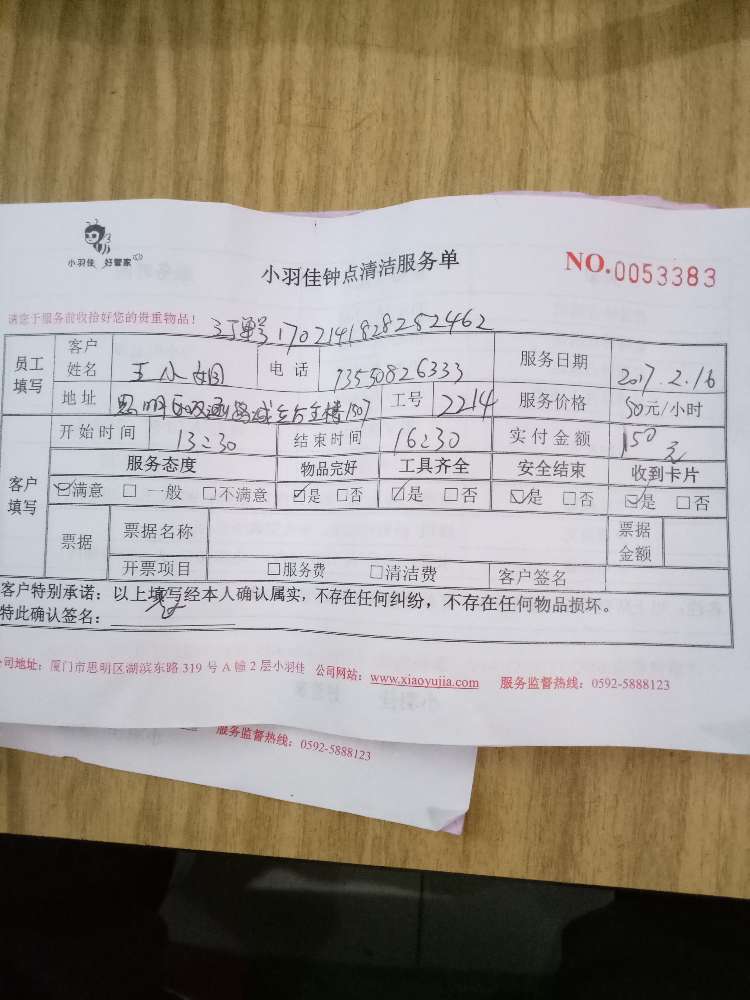 小羽佳 好管家
小羽佳钟点清洁服务单
NO.0053383
请您于服务前收拾好您的贵重物品!
1702141828252462
员工填写 客户姓名 王小姐 电话 13550826333 服务日期 2017.2.16
地址 思明区 1507 工号 2214 服务价格 50元/小时
客户填写 开始时间 13:30 结束时间 16:30 实付金额 150元
服务态度 物品完好 工具齐全 安全结束 收到卡片
☑满意 □一般 □不满意 ☑是 □否 ☑是 □否 ☑是 □否 ☑是 □否
票据 票据名称 票据金额
开票项目 □服务费 □清洁费 客户签名
客户特别承诺：以上填写经本人确认属实，不存在任何纠纷，不存在任何物品损坏。
特此确认签名：
公司地址：厦门市思明区湖滨东路 319 号 A 幢 2 层小羽佳 公司网站：www.xiaoyujia.com 服务监督热线：0592-5888123
服务监督热线：0592-5888123